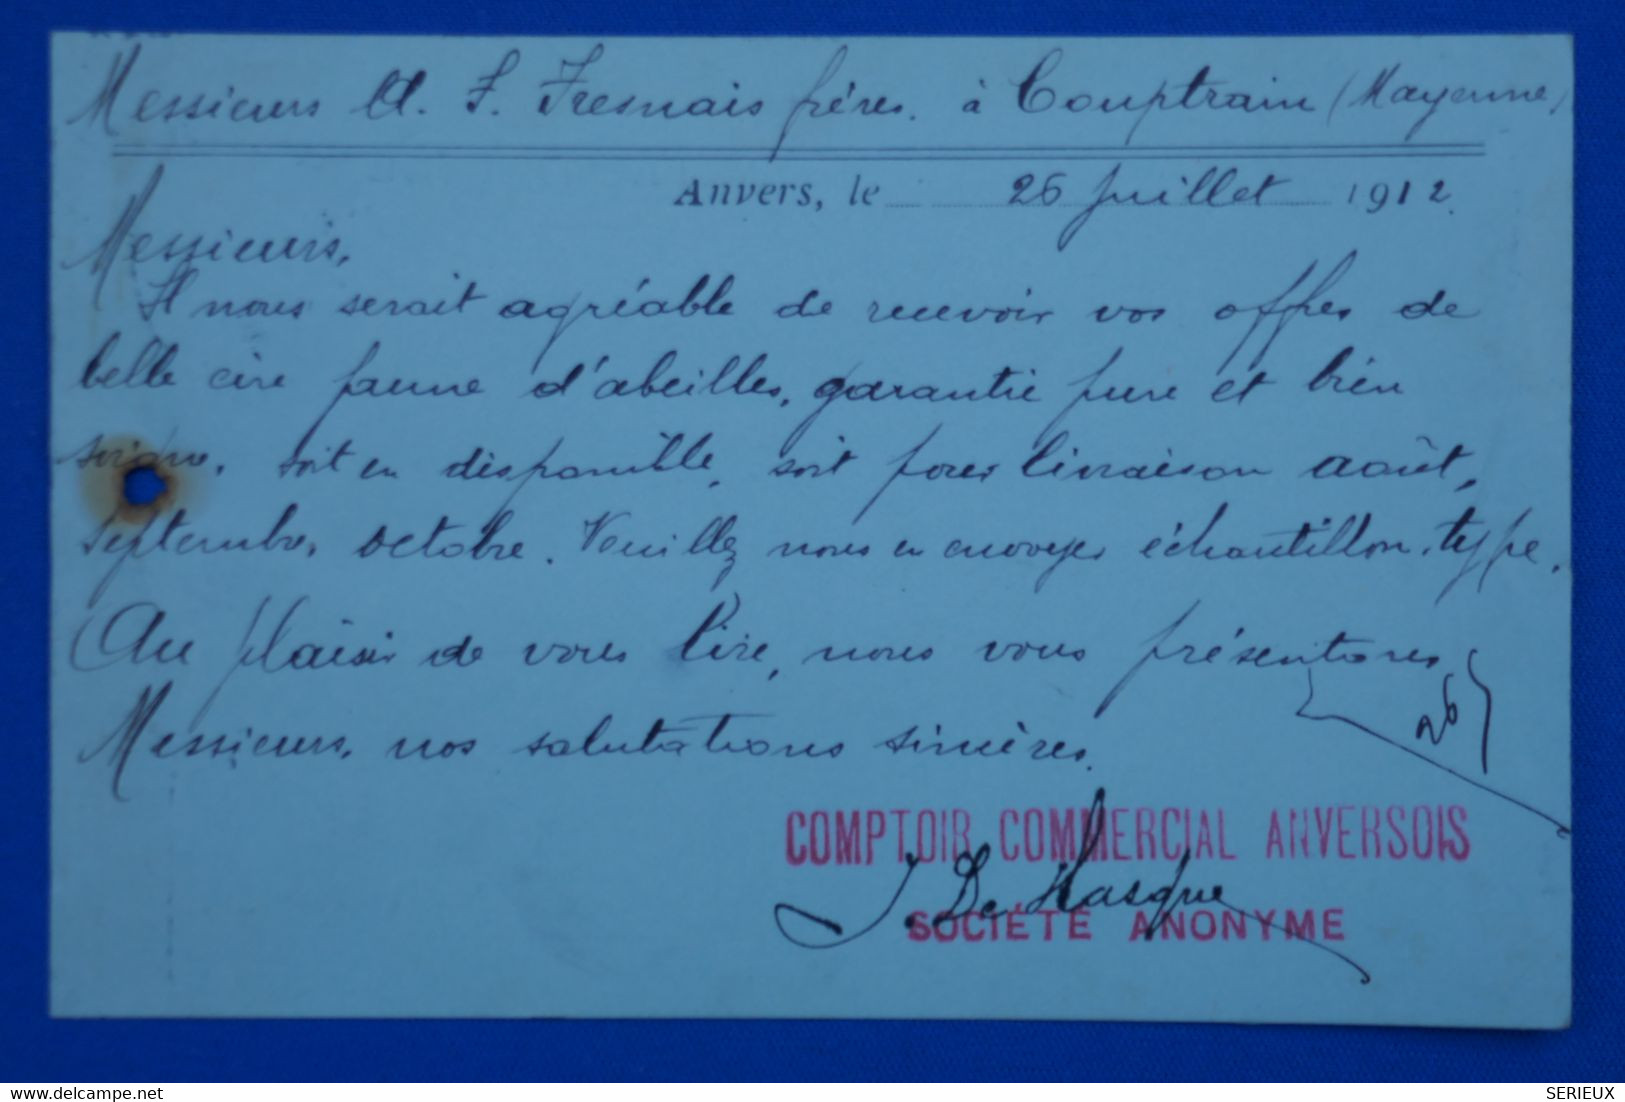 Messieurs A. F. Fresnais frères. à Couptrain (Mayenne)
Anvers, le 26 Juillet 1912.
Messieurs,
Il nous serait agréable de recevoir vos offres de
belle cire jaune d'abeilles, garantie pure et bien
soignée, soit en disponible, soit pour livraison août,
septembre, octobre. Veuillez nous en envoyer échantillon-type.
Au plaisir de vous lire, nous vous présentons,
Messieurs, nos salutations sincères.
26
COMPTOIR COMMERCIAL ANVERSOIS
J. De Hasque
SOCIÉTÉ ANONYME
delcampe.net
SERIEUX